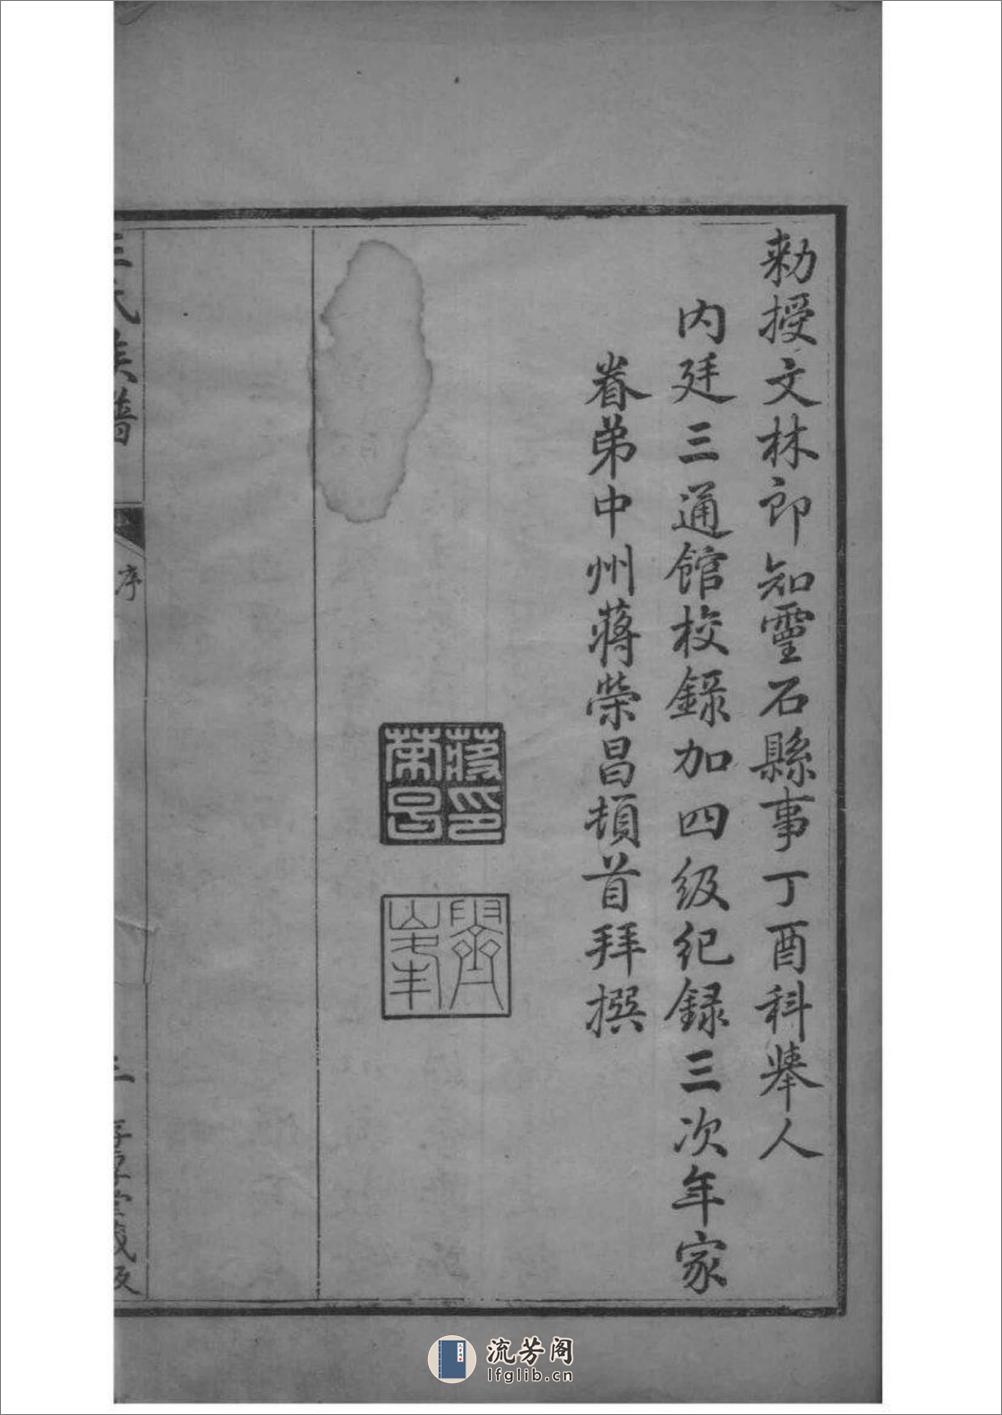 勅授文林郎知靈石縣事丁酉科舉人
内廷三通館校錄加四級紀録三次年家
眷弟中州蔣榮昌頓首拜撰
蔣榮昌印
王氏族譜
序
三
存厚堂藏板
流芳阁
lfglib.cn